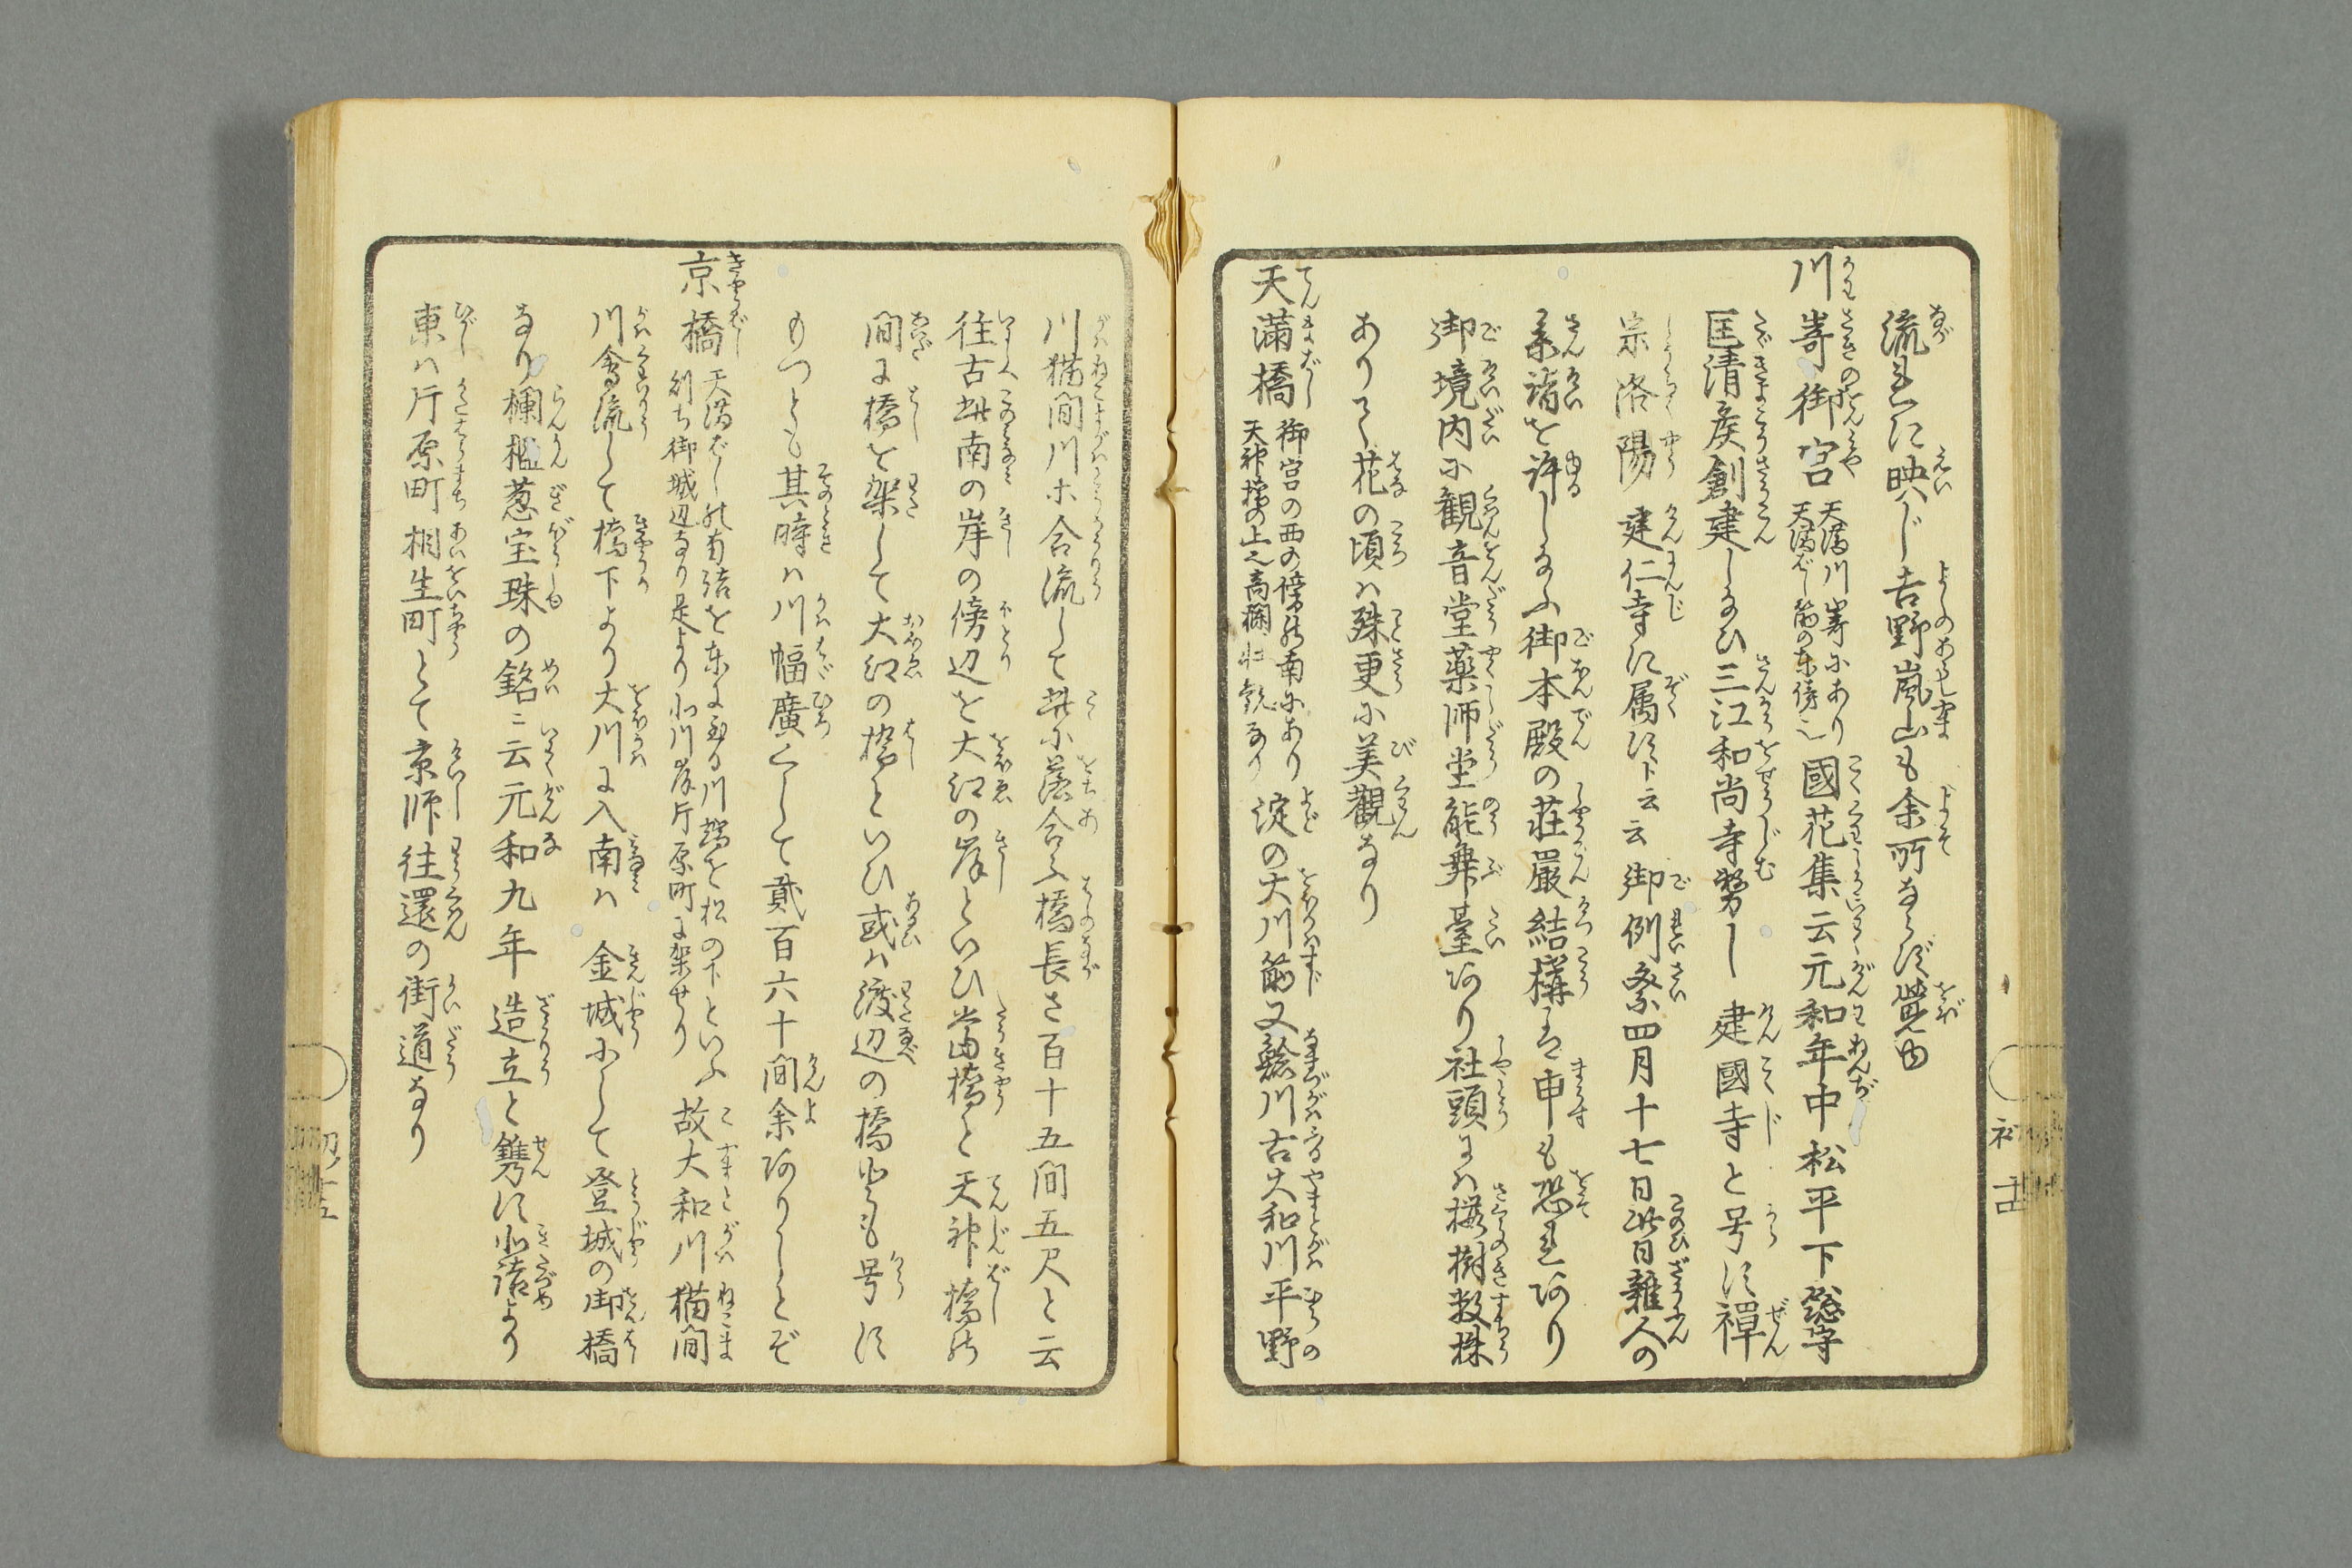 流れに映じ吉野嵐山も余所ならず覚ゆ
川嵜御宮
天満川嵜にあり
天満ばし筋の東傍也
國花集云元和年中松平下総守
匡清矦創建し給ひ三江和尚寺務し 建國寺と号す禅
宗洛陽 建仁寺に属す下云云御例祭四月十七日此日雑人の
参詣を許し給ふ御本殿の荘厳結構は申も恐れあり
御境内に観音堂薬師堂能舞臺あり社頭には桜樹数株
ありて花の頃は殊更に美觀なり
天満橋
御宮の西の傍の南にあり
天神橋の上之高欄壮観なり
淀の大川筋又鯰川古大和川平野
川猫間川ホ合流して此に落合ふ橋長さ百十五間五尺と云
往古此南の岸の傍辺を大江の岸といひ當橋と天神橋の
間に橋を架して大江の橋といひ或は渡辺の橋とも号す
もつとも其時は川幅廣くして貳百六十間余ありしとぞ
京橋
天満ばしの南詰を東に至る川端を松の下といふ
則ち御城辺なり是より北川岸片原町に架せり
故大和川猫間
川會流して橋下より大川に入南は 金城にして登城の御橋
なり欄檻葱宝珠の銘ニ云元和九年造立と鐫す北詰より
東は片原町相生町とて京師往還の街道なり